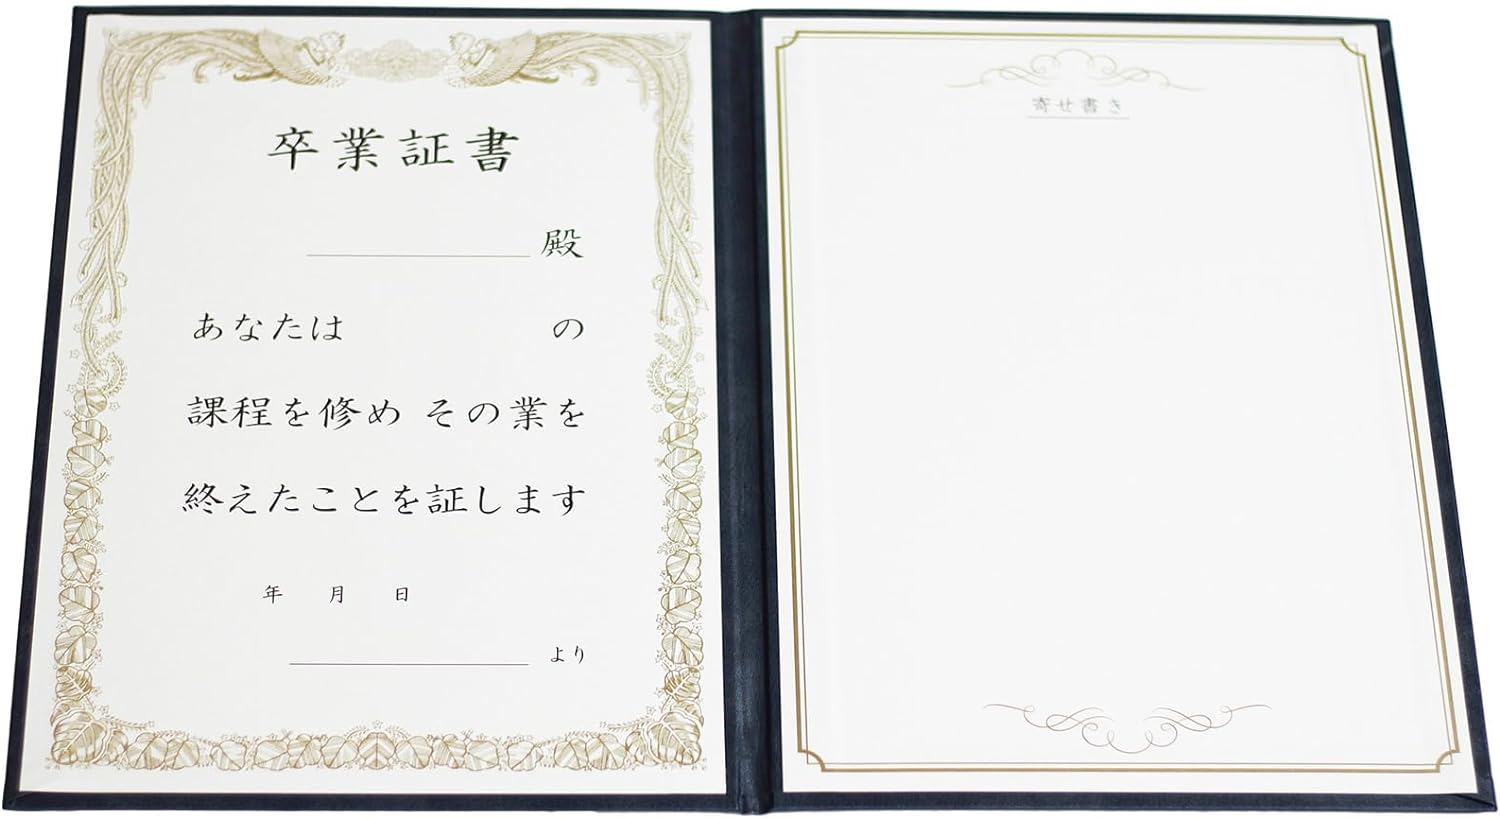 卒業証書
殿
あなたは の
課程を修め その業を
終えたことを証します
年 月 日
より
寄せ書き